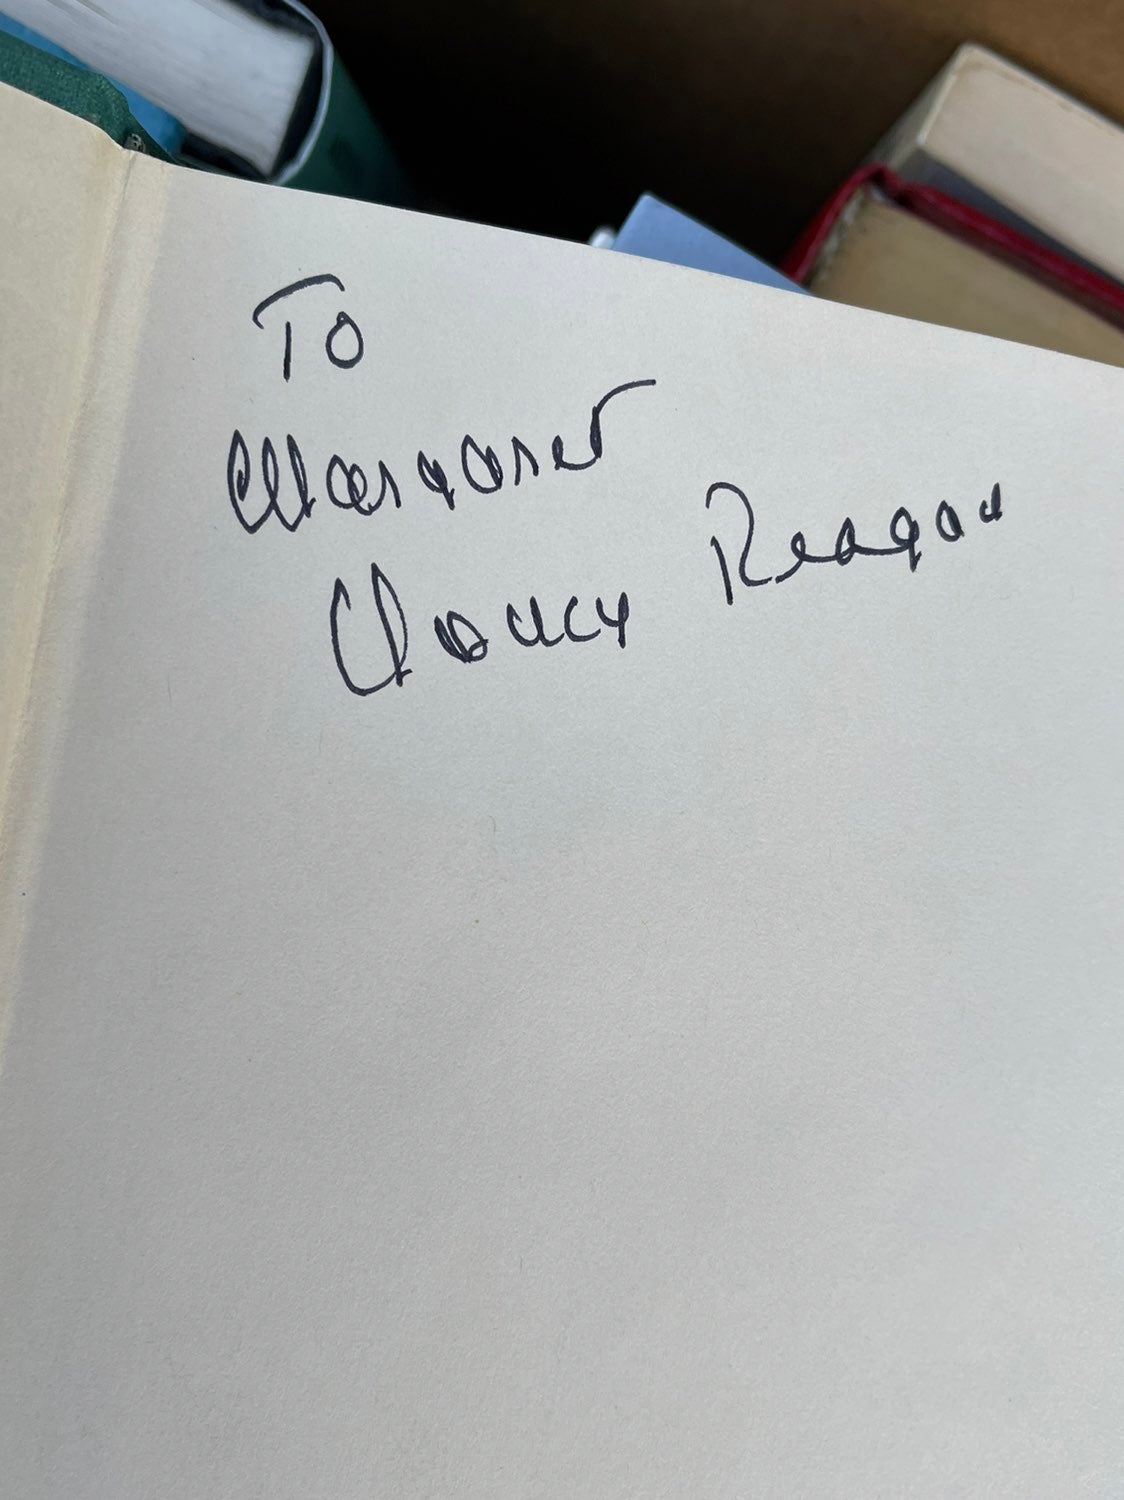 To
Margaret
Nancy Reagan